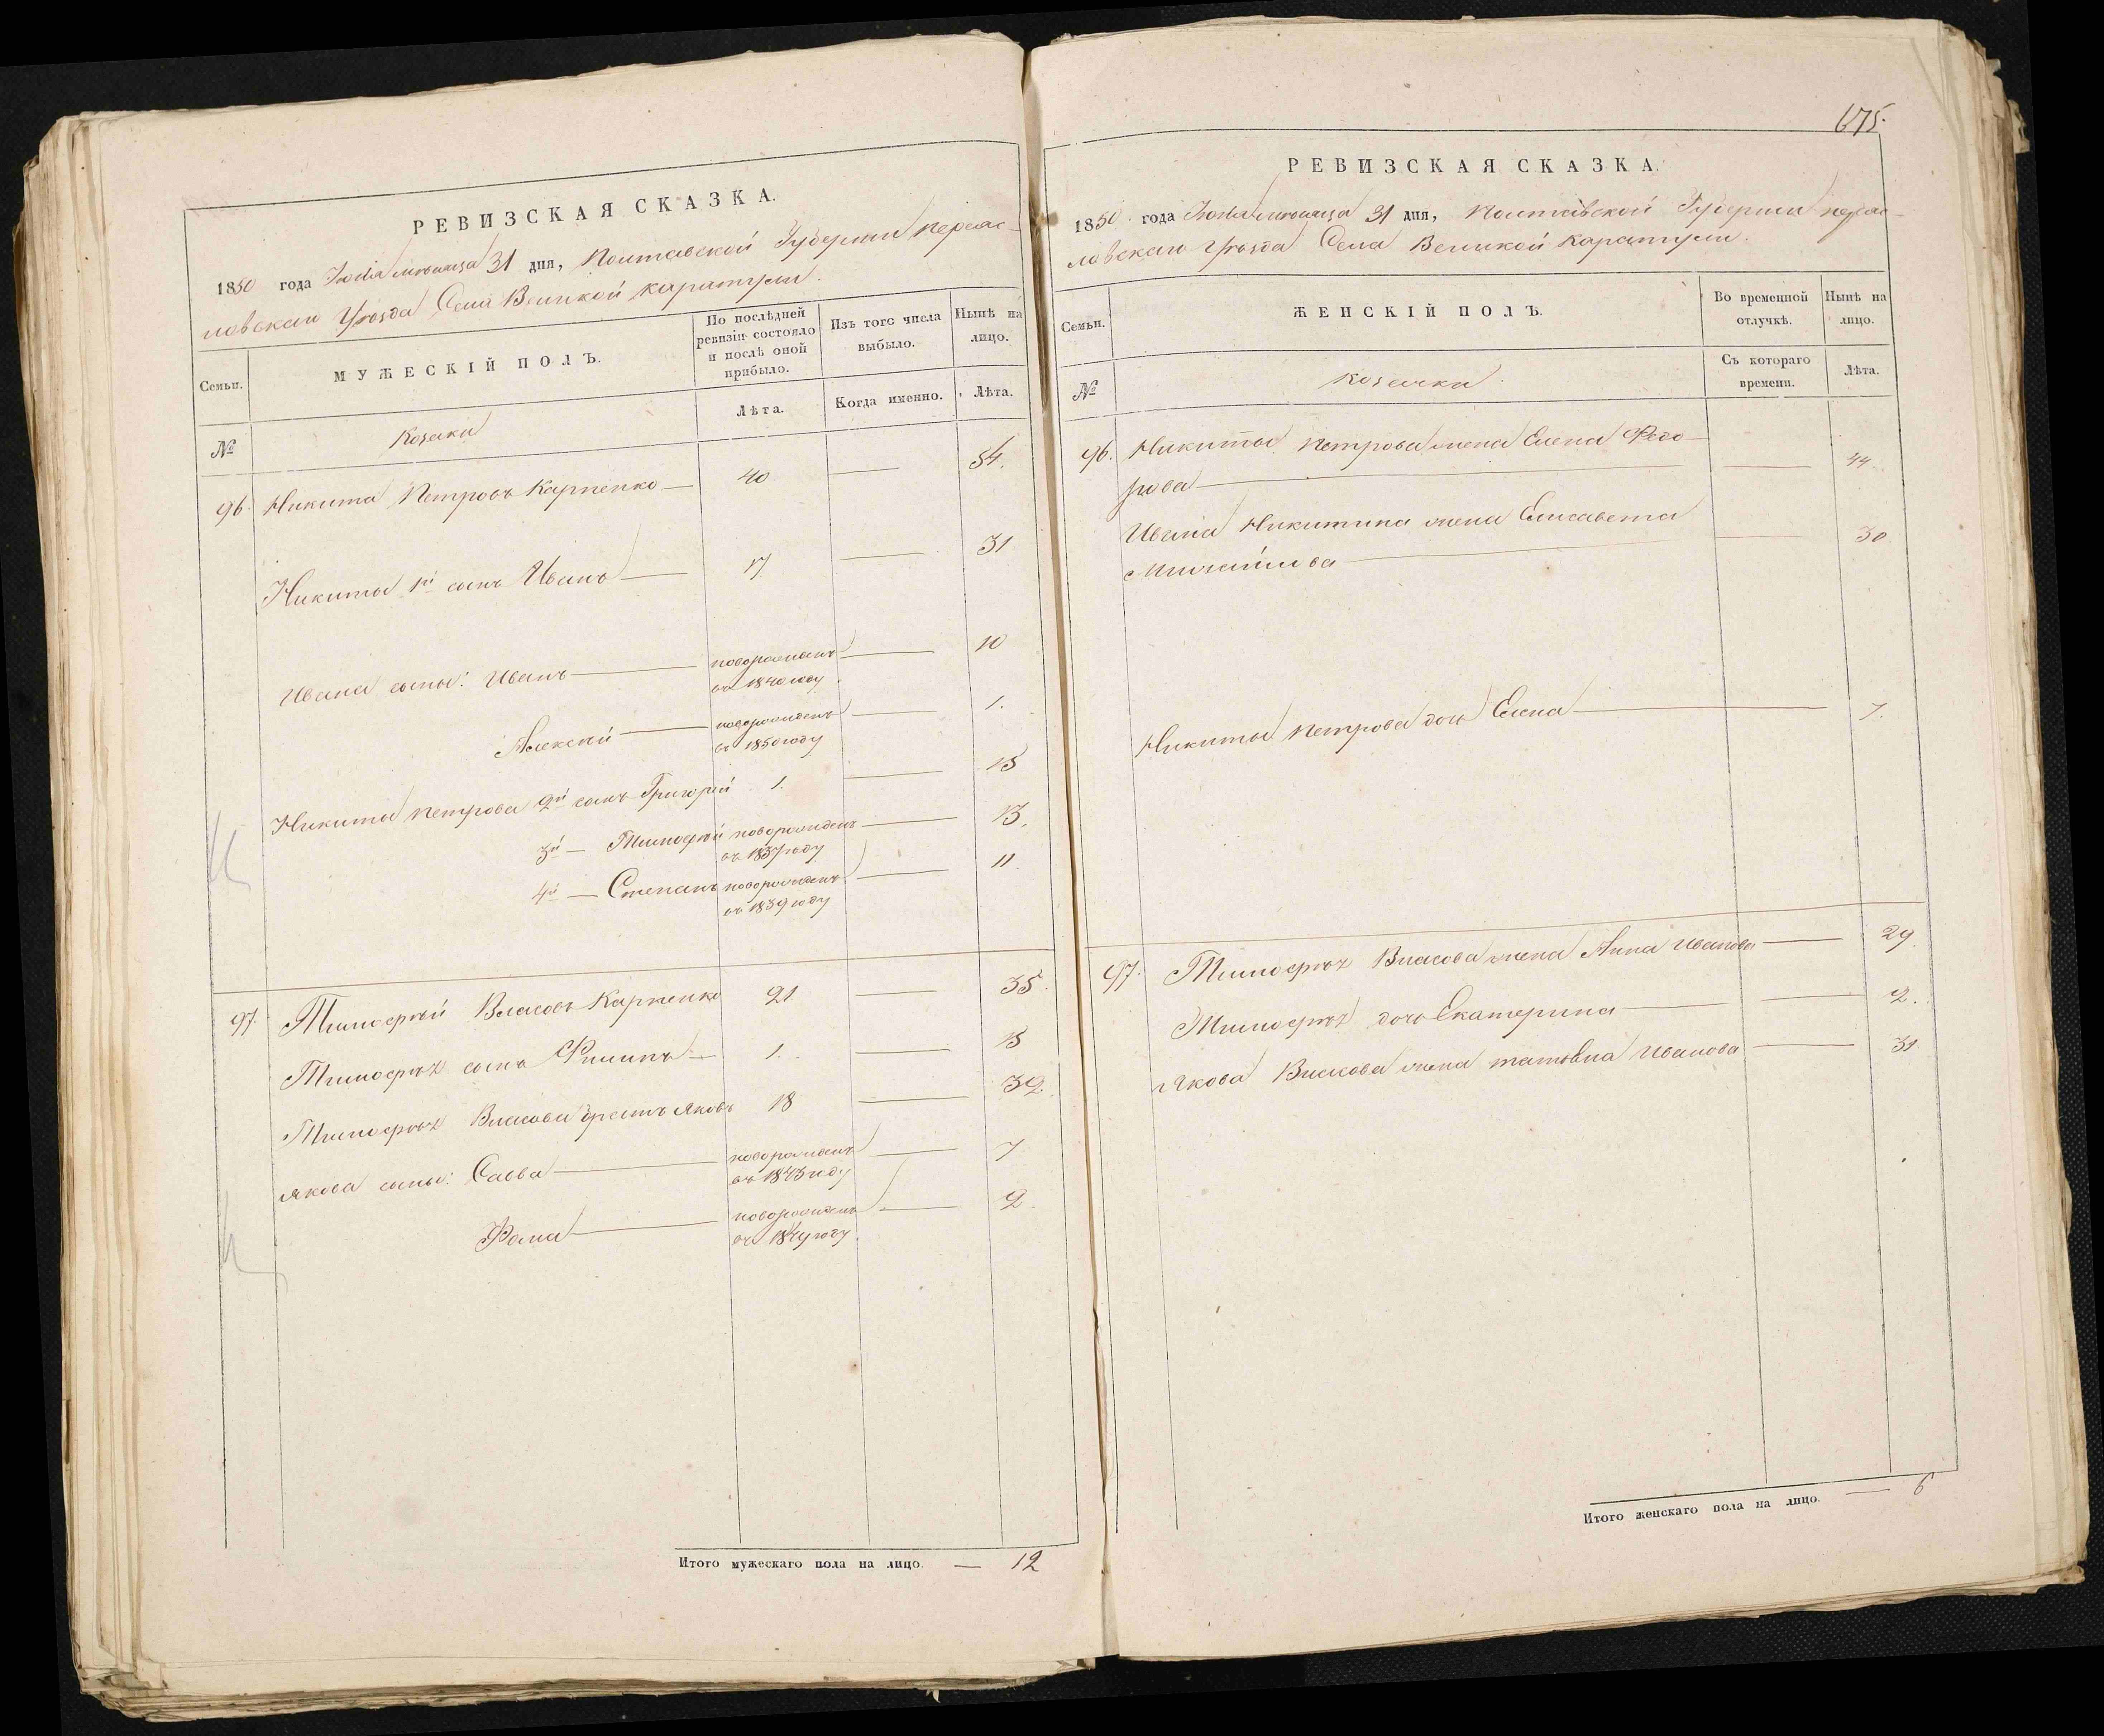 РЕВИЗСКАЯ СКАЗКА.
1850 года Іюля мѣсяца 31 дня, Полтавской Губерніи Переяс-
лавскаго Уѣзда Села Великой Каратули.
Семьи.
МУЖЕСКІЙ ПОЛЪ.
По послѣдней ревизіи состояло и послѣ оной прибыло.
Изъ того числа выбыло.
Нынѣ на лицо.
№
Козаки
Лѣта.
Когда именно.
Лѣта.
96. Никита Петровъ Карпенко — 40 — 54.
Никиты 1й сынъ Иванъ — 17 — 31
Ивана сыны: Иванъ — новорожденъ — 10
въ 1840 году
Алексѣй — новорожденъ — 1.
въ 1850 году
Никиты Петрова 2й сынъ Григорій 1. — 15
3й — Тимофѣй новорожденъ — 13.
въ 1837 году
4й — Степанъ новорожденъ — 11
въ 1839 году
97. Тимофѣй Власовъ Карпенко 21 — 35.
Тимофѣя сынъ Филипъ — 1. — 15
Тимофѣя Власова братъ Яковъ 18 — 32.
Якова сыны: Савва — новорожденъ — 7
въ 1843 году
Фома — новорожденъ — 2.
въ 1849 году.
Итого мужескаго пола на лицо. — 12
675.
РЕВИЗСКАЯ СКАЗКА.
1850 года Іюля мѣсяца 31 дня, Полтавской Губерніи Переяс-
лавскаго Уѣзда Села Великой Каратули.
Семьи.
ЖЕНСКІЙ ПОЛЪ.
Во временной отлучкѣ.
Нынѣ на лицо.
№
Козачки.
Съ котораго времени.
Лѣта.
96. Никиты Петрова жена Елена Федо-
рова — — 44.
Ивана Никитина жена Елисавета
Михайлова — — 30.
Никиты Петрова дочь Елена — 7.
97. Тимофѣя Власова жена Анна Иванова — 29.
Тимофѣя дочь Екатерина — — 2.
Якова Власова жена Татьяна Иванова — 31.
Итого женскаго пола на лицо. — 6